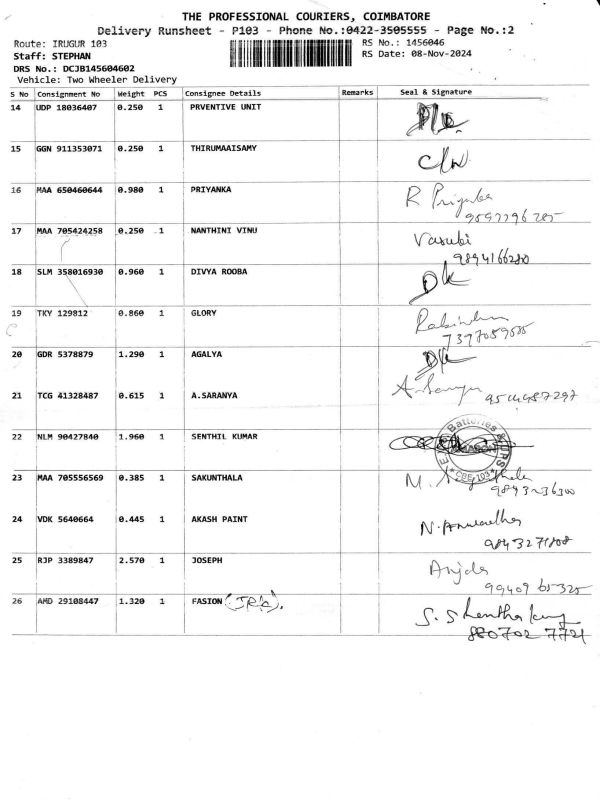 THE PROFESSIONAL COURIERS, COIMBATORE
Delivery Runsheet - P103 - Phone No.:0422-3505555 - Page No.:2
Route: IRUGUR 103 RS No.: 1456046
Staff: STEPHAN RS Date: 08-Nov-2024
DRS No.: DCJB145604602
Vehicle: Two Wheeler Delivery
S No Consignment No Weight PCS Consignee Details Remarks Seal & Signature
14 UDP 18036407 0.250 1 PRVENTIVE UNIT
15 GGN 911353071 0.250 1 THIRUMAAISAMY
16 MAA 650460644 0.980 1 PRIYANKA R Priyanka
17 MAA 705424258 0.250 1 NANTHINI VINU Vasuki
9894166280
18 SLM 358016930 0.960 1 DIVYA ROOBA
19 TKY 129812 0.860 1 GLORY
20 GDR 5378879 1.290 1 AGALYA
21 TCG 41328487 0.615 1 A.SARANYA A. Saranya
22 NLM 90427840 1.960 1 SENTHIL KUMAR Batteries
23 MAA 705556569 0.385 1 SAKUNTHALA
24 VDK 5640664 0.445 1 AKASH PAINT
25 RJP 3389847 2.570 1 JOSEPH
26 AMD 29108447 1.320 1 FASION
880702 7721